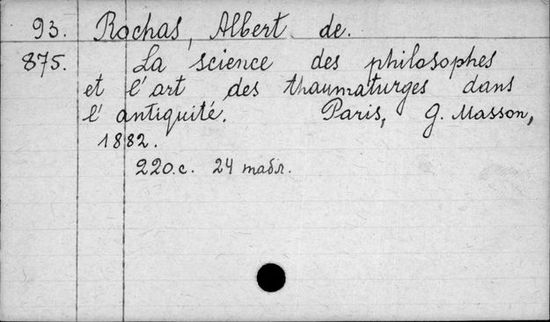 93. Rochas, Albert de.
875. La science des philosophes
et l'art des thaumaturges dans
l'antiquité. Paris, G. Masson,
1882.
220.c. 24 табл.